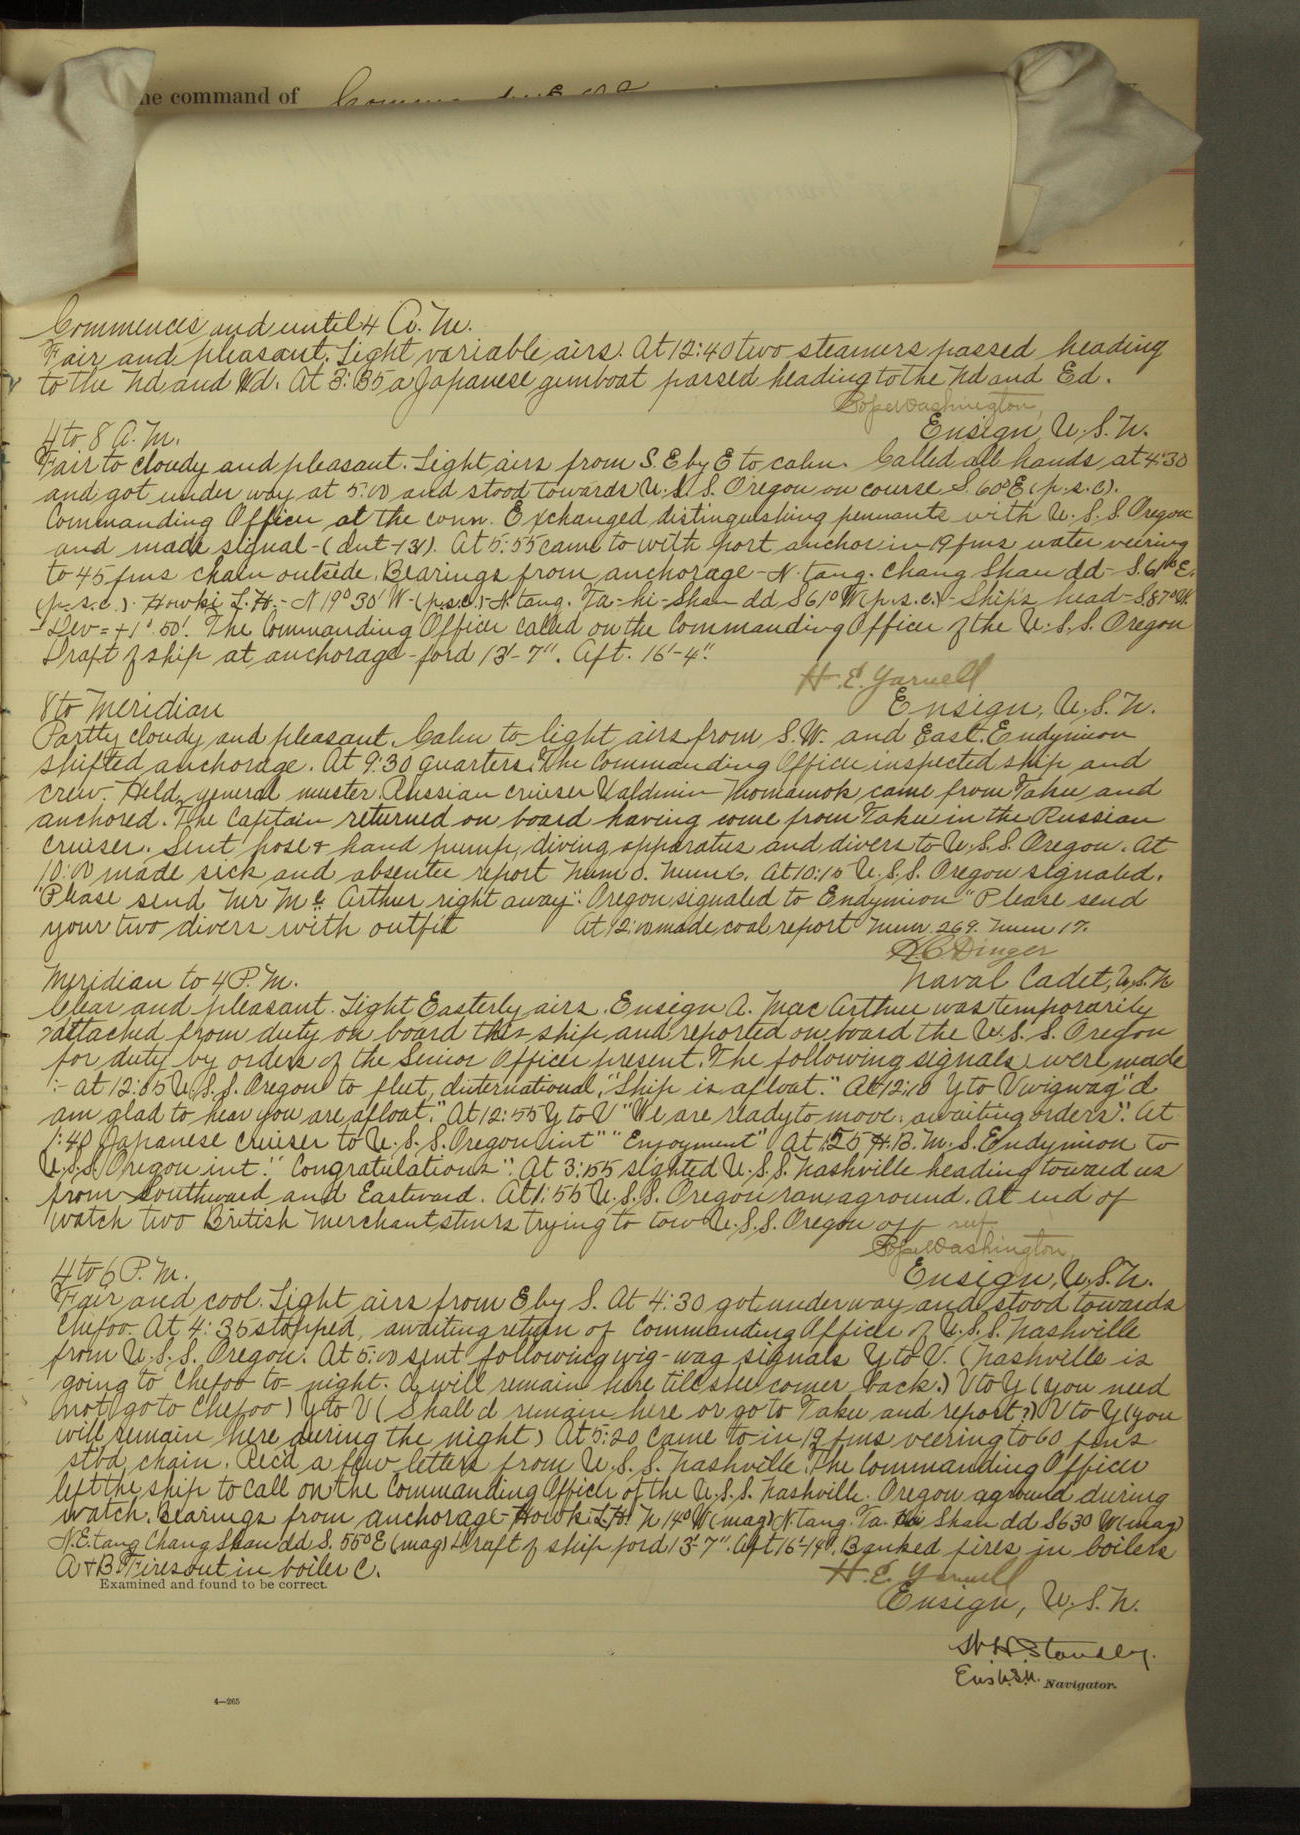 he command of
Commences and until 4 A.M.
Fair and pleasant. Light variable airs. At 12:40 two steamers passed heading
to the Nd and Wd. At 3:35 a Japanese gunboat passed heading to the Nd and Ed.
Pope Washington,
Ensign, U.S.N.
4 to 8 A.M.
Fair to cloudy and pleasant. Light airs from S.E by E to calm. Called all hands at 4:30
and got under way at 5:00 and stood towards U.S.S. Oregon on course S. 60° E (p.s.c).
Commanding Officer at the conn. Exchanged distinguishing pennants with U.S.S. Oregon
and made signal - At 5:55 came to with port anchor in 19 fms water veering
to 45 fms chain outside. Bearings from anchorage - N. tang. Chang Shan dd - S. 61° E.
(p.s.c.) - Howki L.H. - N 19° 30' W - (p.s.c.) - N. tang. Ta-hi-Shan dd S 61° W (p.s.c.) - Ship's head - S 87° W.
Dev = + 1° 50'. The Commanding Officer called on the Commanding Officer of the U.S.S. Oregon
Draft of ship at anchorage - ford 13'-7". Aft. 16'-4".
H.E. Yarnell
Ensign, U.S.N.
8 to Meridian
Partly cloudy and pleasant. Calm to light airs from S.W. and East. Endymion
shifted anchorage. At 9:30 quarters. The Commanding Officer inspected ship and
crew. Held general muster. Russian cruiser came from Taku and
anchored. The Captain returned on board having come from Taku in the Russian
cruiser. Sent hose & hand pump, diving apparatus and divers to U.S.S. Oregon. At
10:00 made sick and absentee report Num 0. Num 6. At 10:10 U.S.S. Oregon signaled.
"Please send Mr Mc Arthur right away". Oregon signaled to Endymion "Please send
your two divers with outfit At 12:00 made coal report Num 269. Num 17.
H.C. Dinger
Naval Cadet, U.S.N
Meridian to 4 P.M.
Clear and pleasant. Light Easterly airs. Ensign A. Mac Arthur was temporarily
detached from duty on board this ship and reported on board the U.S.S. Oregon
for duty by orders of the Senior Officer present. The following signals were made
:- at 12:05 U.S.S. Oregon to fleet, international, "Ship is afloat." At 12:10 Y to V wigwag "I
am glad to hear you are afloat." At 12:55 Y to V "We are ready to move, awaiting orders". At
1:40 Japanese cruiser to U.S.S. Oregon int "Enjoyment" At 1:25 H.B.M.S. Endymion to
U.S.S. Oregon int. "Congratulations". At 3:55 sighted U.S.S. Nashville heading toward us
from Southward and Eastward. At 1:55 U.S.S. Oregon ran aground. At end of
watch two British Merchant stmrs trying to tow U.S.S. Oregon off reef
Pope Washington,
Ensign, U.S.N.
4 to 6 P.M.
Fair and cool. Light airs from E by S. At 4:30 got underway and stood towards
Chefoo. At 4:35 stopped, awaiting return of Commanding Officer of U.S.S. Nashville
from U.S.S. Oregon. At 5:00 sent following wig-wag signals Y to V. (Nashville is
going to Chefoo to-night. I will remain here till she comes back.) V to Y (you need
not go to Chefoo) Y to V (Shall I remain here or go to Taku and report?) V to Y (you
will remain here during the night) At 5:20 came to in 19 fms veering to 60 fms
stbd chain. Rec'd a few letters from U.S.S. Nashville. The Commanding Officer
left the ship to call on the Commanding Officer of the U.S.S. Nashville. Oregon aground during
watch. Bearings from anchorage - Howki L.H. N 14° W (mag) N tang. Ta Shan dd S 63° W (mag)
N.E. tang Chang Shan dd S. 55° E (mag) Draft of ship ford 13'-7". Aft 16'-14". Banked fires in boilers
A & B. Fires out in boiler C.
Examined and found to be correct.
H.E. Yarnell
Ensign, U.S.N.
W H Standley.
Ens. U.S.N. Navigator.
4—265